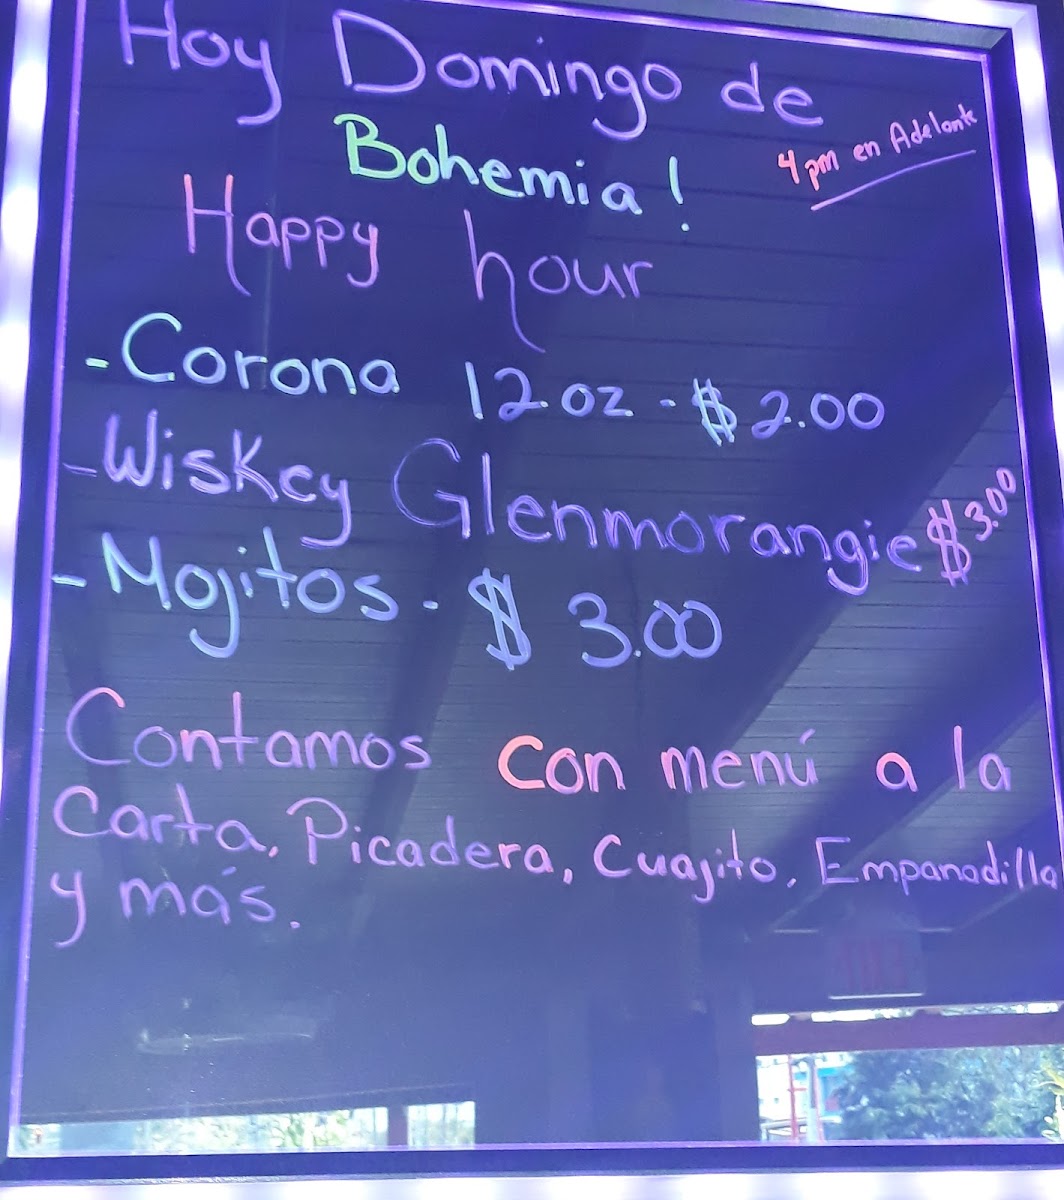 Hoy Domingo de
Bohemia!
4 pm en Adelante
Happy hour
- Corona 12 oz - $ 2.00
- Wiskey Glenmorangie $ 3.00
- Mojitos - $ 3.00
Contamos con menú a la
Carta, Picadera, Cuajito, Empanadilla
y más.